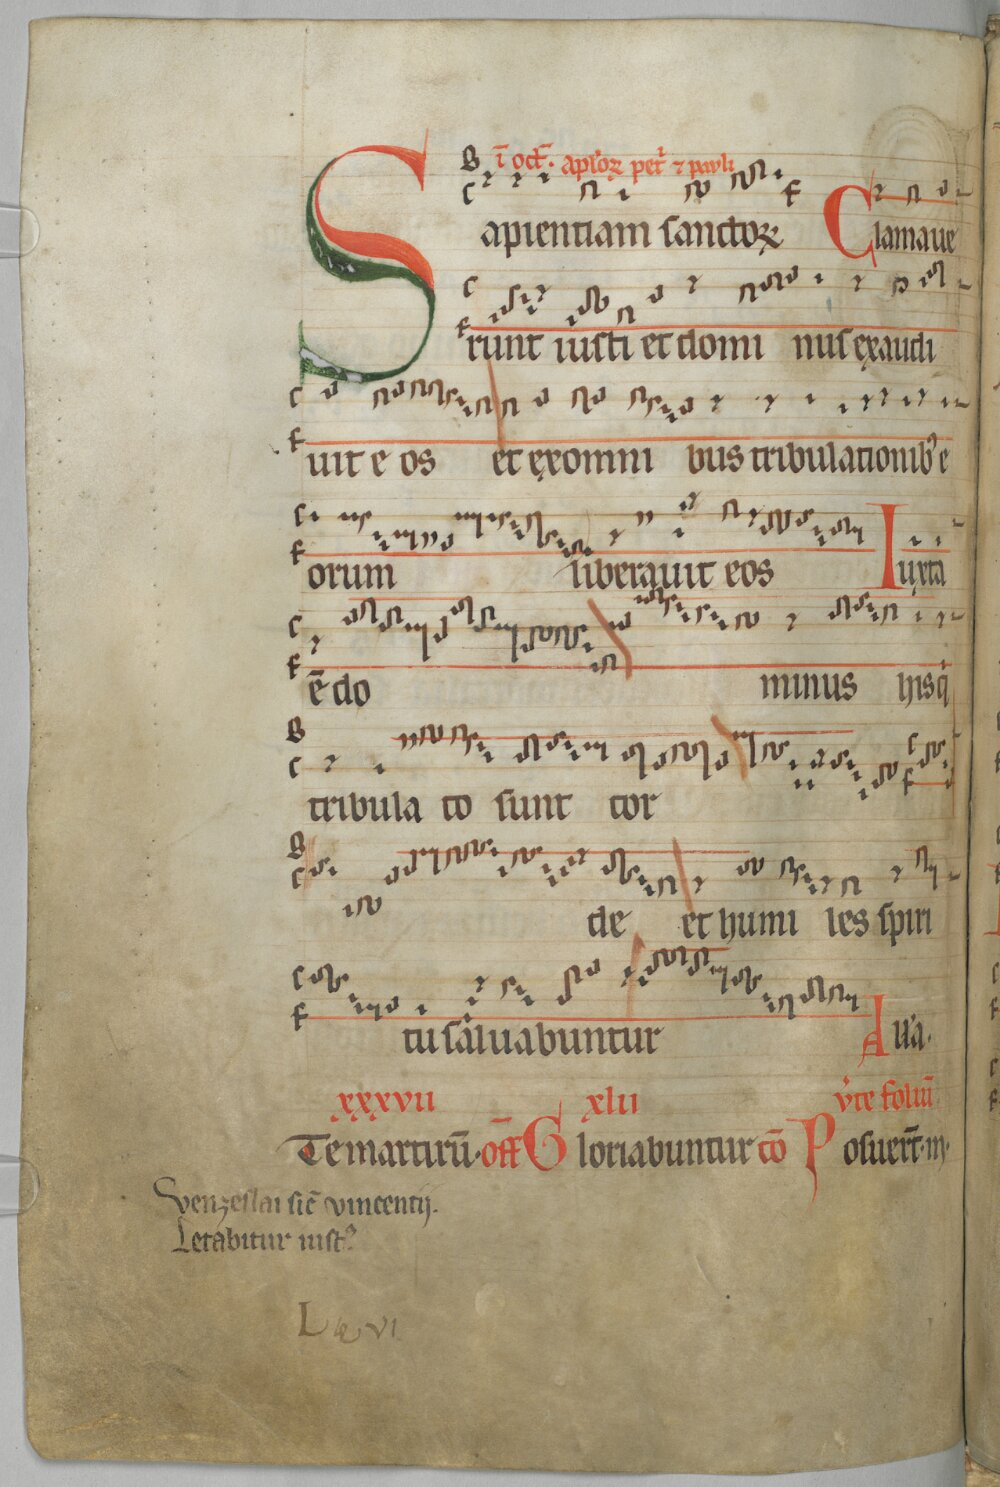 ī oct̄. aplōꝝ pet̄ ⁊ pauli
Sapientiam sanctoꝝ Clamaue
runt iusti et domi nus exaudi
uit e os et ex omni bus tribulationib⁹ e
orum liberauit eos Iuxta
ē do minus his q̇
tribula to sunt cor
de et humi les spiri
tu saluabuntur Aĺla.
xxxvii xlii v̇te foliū
Te martirū. off̄ Gloriabuntur cō Posuer̄t. m̄.
Venzeslai sic̄ vincentij.
Letabitur iust⁹